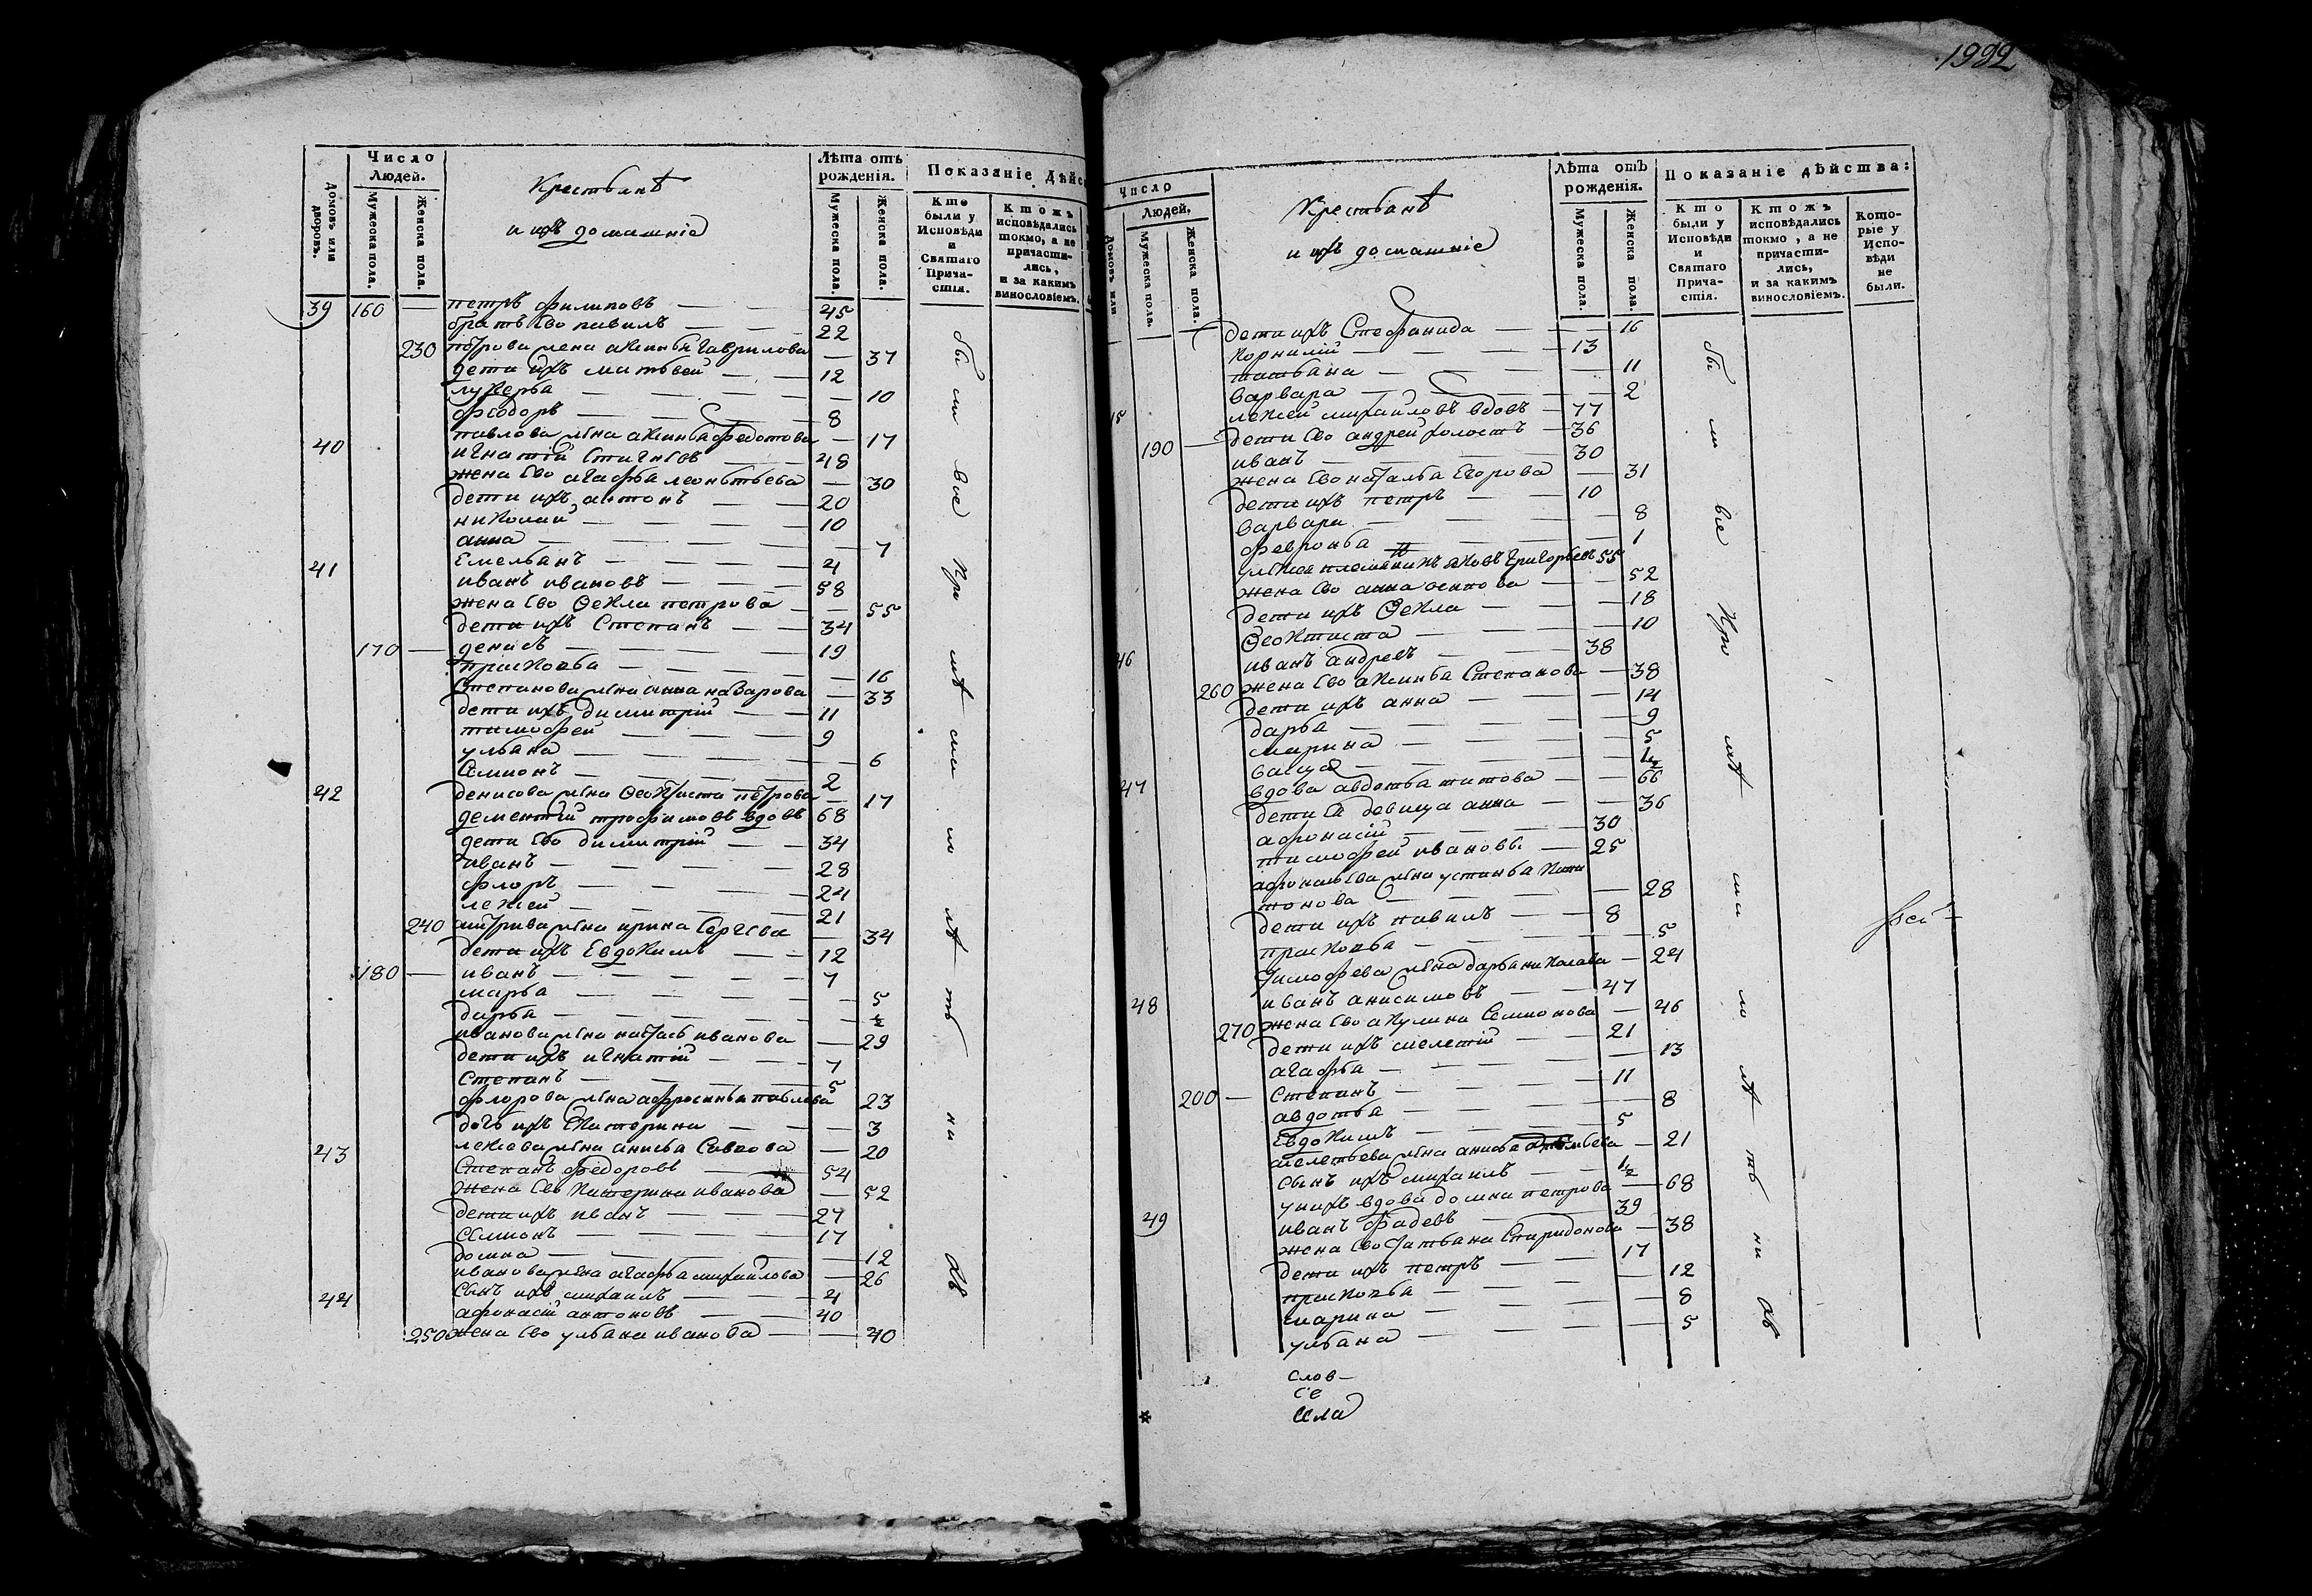 1992
Число
Людей.
Домовъ или дворовъ.
Мужеска пола.
Женска пола.
Крестьянѣ
и ихъ домашніе
Лѣта отъ
рожденія.
Мужеска пола.
Женска пола.
Показаніе Дѣйс
Кто были у Исповѣди и Святаго Прича-стія.
Ктожъ исповѣдались токмо, а не причасти-лись, и за какимъ винословіемъ.
39 160 — петръ филиповъ — — 45
братъ ево павилъ — — 22
230 петрова жена аксинья гаврилова — 37
дети ихъ матвей — — 12
лукерья — — 10
феодоръ — — 8
павлова жена аксинья федотова — 17
40 игнатій — 48
жена ево агафья леонтьева — 30
дети ихъ антонъ — — 20
николай — — 10
анна — — 7
Емельянъ — — 4
41 иванъ ивановъ — — 58
жена ево Ѳекла петрова — — 55
дети ихъ Степанъ — — 34
170 — денисъ — — 19
прасковья — — 16
Степанова жена анна назарова — 33
дети ихъ димитрій — — 11
тимофей — — 9
ульяна — — 6
Семионъ — — 2
денисова жена Ѳеоктиста петрова — 17
42 дементій трофимовъ вдовъ 68
дети ево димитрій — — 34
иванъ — — 28
флоръ — — 24
лексей — — 21
240 митрива жена ирина Сергева — 34
дети ихъ Евдокимъ — — 12
180 — иванъ — — 7
марья — — 5
дарья — — ½
иванова жена настась иванова — 29
дети ихъ игнатій — — 7
Степанъ — — 5
флорова жена афросинья павлова 23
дочь ихъ Екатерина — — 3
лексева жена анисья Савкова — 20
43 Степанъ федоровъ — — 54
жена ево Катерина иванова — 52
дети ихъ иванъ — — 27
Семионъ — — 17
домна — — 12
иванова жена агафья михайлова — 26
сынъ ихъ михаилъ — — 4
44 афонасій антоновъ — — 40
250 жена ево ульяна иванова — — 40
бы ли все при мѣ ми ло лѣ тѣ ни ѧв
Число
Людей,
Домовъ или
Мужеска пола.
Женска пола.
Крестьянѣ
и ихъ домашніе
Лѣта отъ
рожденія.
Мужеска пола.
Женска пола.
Показаніе дѣйства:
Кто были у Исповѣди и Святаго Прича-стія.
Ктожъ исповѣдались токмо, а не причасти-лись, и за какимъ винословіемъ.
Кото-рые у Испо-вѣди не были.
дети ихъ Стефанида — — 16
Корнилій — — 13
татьяна — — 11
варвара — — 2
45 лексей михайловъ вдовъ — 77
190 — дети ево андрей холостъ — 36
иванъ — 30
жена ево наталья Егорова — 31
дети ихъ петръ — — 10
варвара — — 8
февронья — — 1
племянникъ яковъ григорьевъ 55
жена ево анна осипова — — 52
дети ихъ Ѳекла — — 18
Ѳеоктиста — — 10
46 иванъ андревъ — — 38
260 жена ево аксинья Степанова — 38
дети ихъ анна — — 14
дарья — — 9
марина — — 5
— — ½
47 вдова авдотья титова — — 66
дети ея девица анна — — 36
афонасій — — 30
тимофей ивановъ — 25
афонасьева жена устинья Пла
тонова — — 28
дети ихъ павилъ — — 8
прасковья — — 5
тимофева жена дарья николава — 24
48 иванъ анисимовъ — — 47
270 жена ево акулина Семионова — 46
дети ихъ мелетій — — 21
агафья — — 13
200 — Степанъ — — 11
авдотья — — 8
Евдокимъ — — 5
мелетьева жена анисья — 21
сынъ ихъ михаилъ — — ½
у нихъ вдова домна петрова — 68
49 иванъ фадевъ — — 39
жена ево татьяна Спиридонова — 38
дети ихъ петръ — — 17
прасковья — — 12
марина — — 8
ульяна — — 5